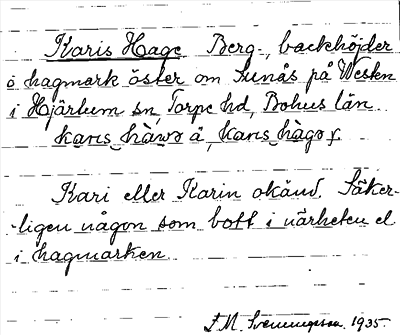 Karis Hage Berg-, backhöjder
o hagmark öster om Sunås på Westen
i Hjärtum sn, Torpe hd, Bohus län.
karis hàwə å, karis hàgər
Kari eller Karin okänd. Säker-
-ligen någon som bott i närheten el
i hagmarken.
L. M. Svenungsson 1935.